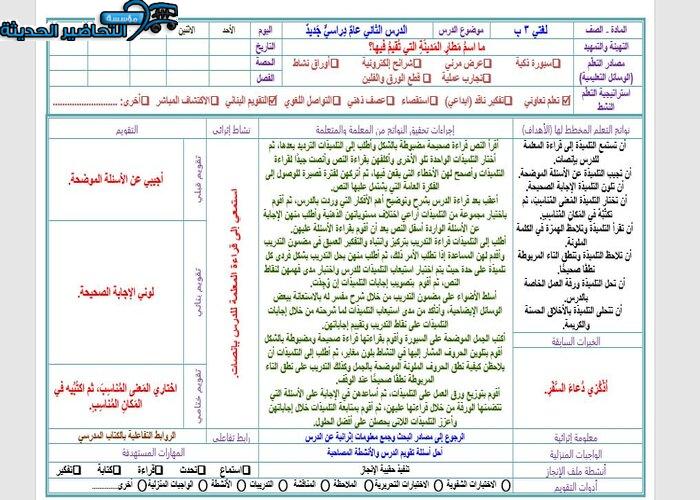 مؤسسة
التحاضير الحديثة
المادة ــ الصف
لغتي ٣ ب
موضوع الدرس
الدرس الثاني عام دراسيٌّ جديدٌ
اليوم
الأحد
الاثنين
التهيئة والتمهيد
ما اسمُ مَطارِ المَدينَةِ التي تُقيمُ فيها؟
التاريخ
مصادر التعلم
(الوسائل التعليمية)
سبورة ذكية
عرض مرئي
شرائح إلكترونية
أوراق نشاط
تجارب عملية
قطع الورق والفلين
الحصة
الفصل
استراتيجية التعلم النشط
تعلم تعاوني
تفكير ناقد (ابداعي)
استقصاء
عصف ذهني
التواصل اللغوي
التقويم البنائي
الاكتشاف المباشر
أخرى: ........................
نواتج التعلم المخطط لها (الأهداف)
إجراءات تحقيق النواتج من المعلمة والمتعلمة
نشاط إثرائي
التقويم
أن تستمع التلميذة إلى قراءة المعلمة
للدرس بإنصات.
أن تجيب التلميذة عن الأسئلة الموضحة.
أن تلون التلميذة الإجابة الصحيحة.
أن تختار التلميذة المعنى المُناسِبَ، ثم
تكتُبُه في المكان المُناسبِ.
أن تقرأ التلميذة وتلاحظ الهمزة في الكلمة
الملونة.
أن تلاحظ التلميذة وتنطق التاء المربوطة
نطقًا صحيحًا.
أن تحل التلميذة ورقة العمل الخاصة
بالدرس.
أن تتحلى التلميذة بالأخلاق الحسنة
والكريمة.
الخبرات السابقة
أذْكُري دُعاءَ السَّفَرِ.
أقرأ النص قراءة صحيحة مضبوطة بالشكل وأطلب إلى التلميذات الترديد بعدها، ثم
أختار التلميذات الواحدة تلو الأخرى وأكلفهن بقراءة النص وأنصت جيدًا لقراءة
التلميذات وأصحح لهن الأخطاء التي يقعن فيها، ثم أتركهن لفترة قصيرة للوصول إلى
الفكرة العامة التي يشتمل عليها النص.
أعقب بعد قراءة الدرس بشرح وتوضيح أهم الأفكار التي وردت بالدرس، ثم أقوم
باختيار مجموعة من التلميذات أراعي اختلاف مستوياتهن الذهنية وأطلب منهن الإجابة
عن الأسئلة الواردة أسفل النص بعد أن أقوم بقراءة الأسئلة عليهن.
أطلب إلى التلميذات قراءة التدريب بتركيز وانتباه والتفكير العميق في مضمون التدريب
وأقدم لهن المساعدة إذا تطلب الأمر ذلك، ثم أطلب منهن بحل التدريب بشكل فردي كل
تلميذة على حدة حيث يتم اختيار استيعاب التلميذات للدرس واختبار مدى فهمهن لنقاط
النص، ثم أقوم بتصويب إجابات التلميذات إن وُجدت.
أسلط الأضواء على مضمون التدريب من خلال شرح مفسر له بالاستعانة ببعض
الوسائل الإيضاحية، وأتأكد من مدى استيعاب التلميذات لما شرحته من خلال إجابات
التلميذات على نقاط التدريب وتقييم إجاباتهن.
أكتب الجمل الموضحة على السبورة وأقوم بقراءتها قراءة صحيحة ومضبوطة بالشكل
أقوم بتلوين الحروف المشار إليها في النشاط بلون مغاير، ثم أطلب إلى التلميذات أن
يلاحظن كيفية نطق الحروف الملونة الموضحة بالجمل وكذلك التدريب على نطق التاء
المربوطة نطقًا صحيحًا عند الوقف.
أقوم بتوزيع ورق العمل على التلميذات، ثم أساعدهن في الإجابة على الأسئلة التي
تتضمنها الورقة من خلال قراءتها عليهن، ثم أقوم بمتابعة التلميذات خلال إجاباتهن
وأعزز التلميذات اللاتي يحصلن على أفضل الحلول.
استمعي إلى قراءة المعلمة للدرس بإنصات.
تقويم قبلي
أجيبي عن الأسئلة الموضحة.
تقويم بنائي
لوني الإجابة الصحيحة.
تقويم ختامي
اختاري المَعنى المُناسِبَ، ثم اكتُبُيه في
المَكانِ المُناسِبِ.
معلومة إثرائية
الرجوع إلى مصادر البحث وجمع معلومات إثرائية عن الدرس
رابط تفاعلي
الروابط التفاعلية بالكتاب المدرسي
الواجبات المنزلية
أحل أسئلة تقويم الدرس والأنشطة المصاحبة
المهارات المستهدفة
أنشطة ملف الإنجاز
تنفيذ حقيبة الإنجاز
استماع
تحدث
قراءة
كتابة
تفكير
أدوات التقويم
الاختبارات الشفوية
الاختبارات التحريرية
الملاحظة
المناقشة
التدريبات
الأنشطة
الواجبات المنزلية
أخرى ....................